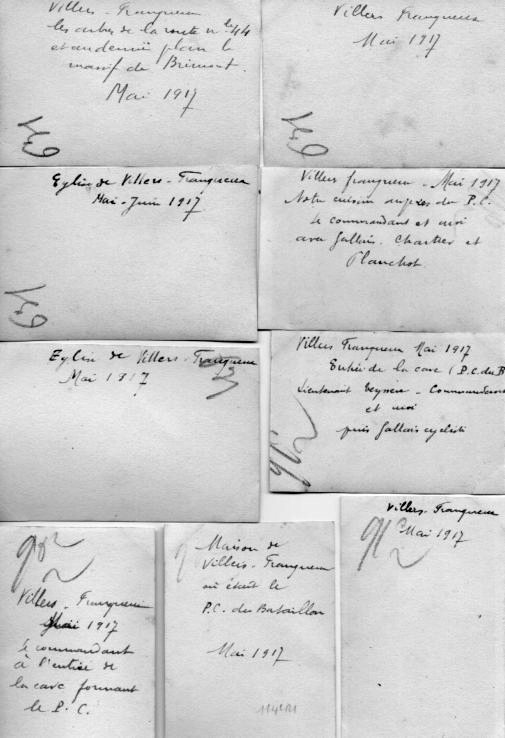 Villers - Franqueux
les arbres de la route nle 44
et au dernier plan le
massif de Brimont.
Mai 1917
Villers Franqueux
Mai 1917
Eglise de Villers - Franqueux
Mai - Juin 1917
Villers franqueux - Mai 1917
Notre cuisine auprès du P.C.
le commandant et moi
avec Gallais. Chartier et
Planchot.
Eglise de Villers - Franqueux
Mai 1917
Villers Franqueux Mai 1917
Entrée de la cave (P.C. du B
Lieutenant - Commandant
et moi
puis Gallais cycliste
Villers - Franqueux
Mai 1917
le commandant
à l'entrée de
la cave formant
le P.C.
Maison de
Villers - Franqueux
où était le
P.C. du Bataillon
Mai 1917
Villers - Franqueux
Mai 1917